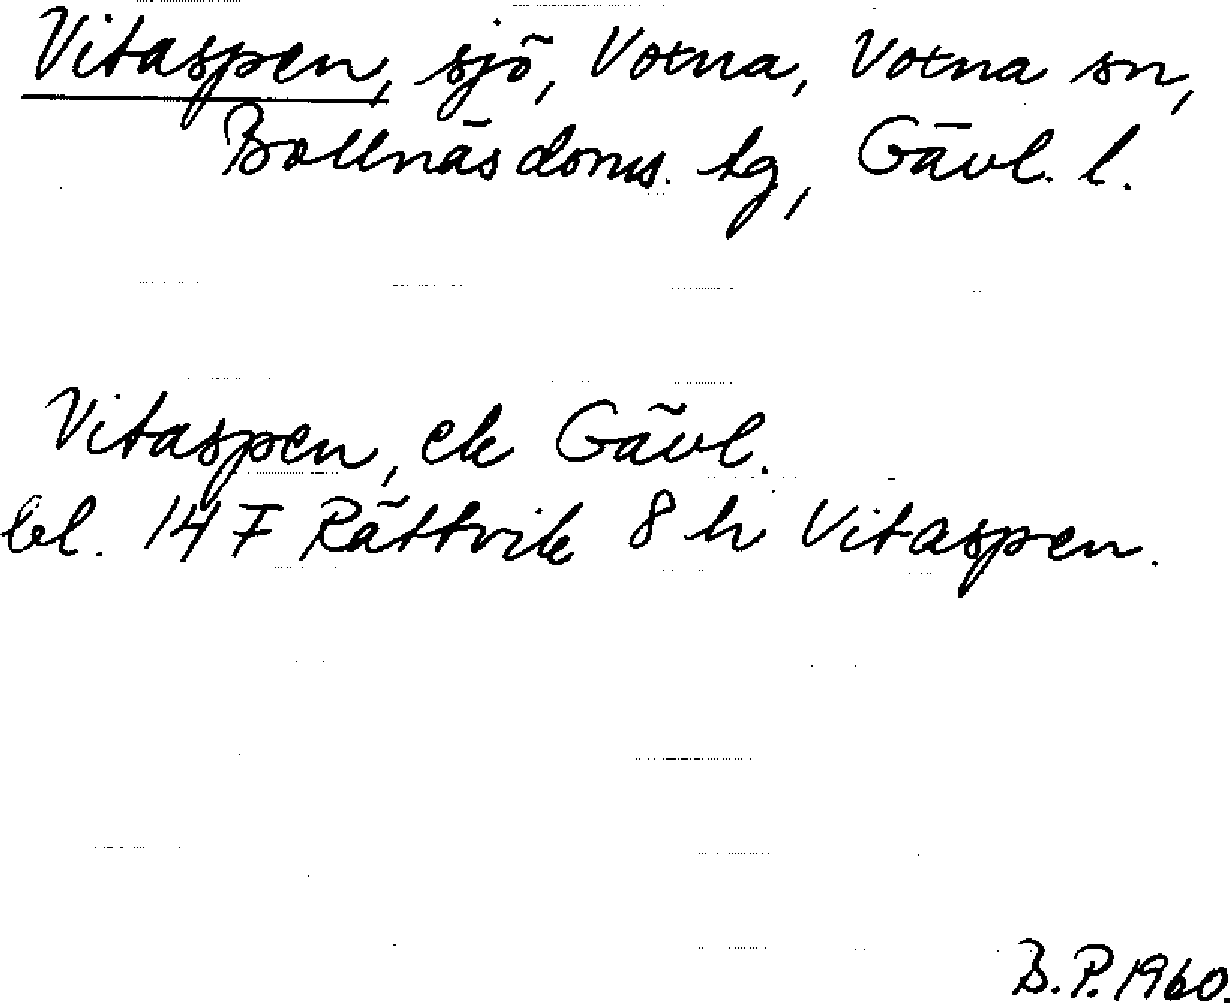 Vitaspen, sjö, Voxna, Voxna sn,
Bollnäs doms. tg, Gävl. l.
Vitaspen, ek Gävl.
bl. 14 F Rättvik 8 h Vitaspen.
B.P. 1960.